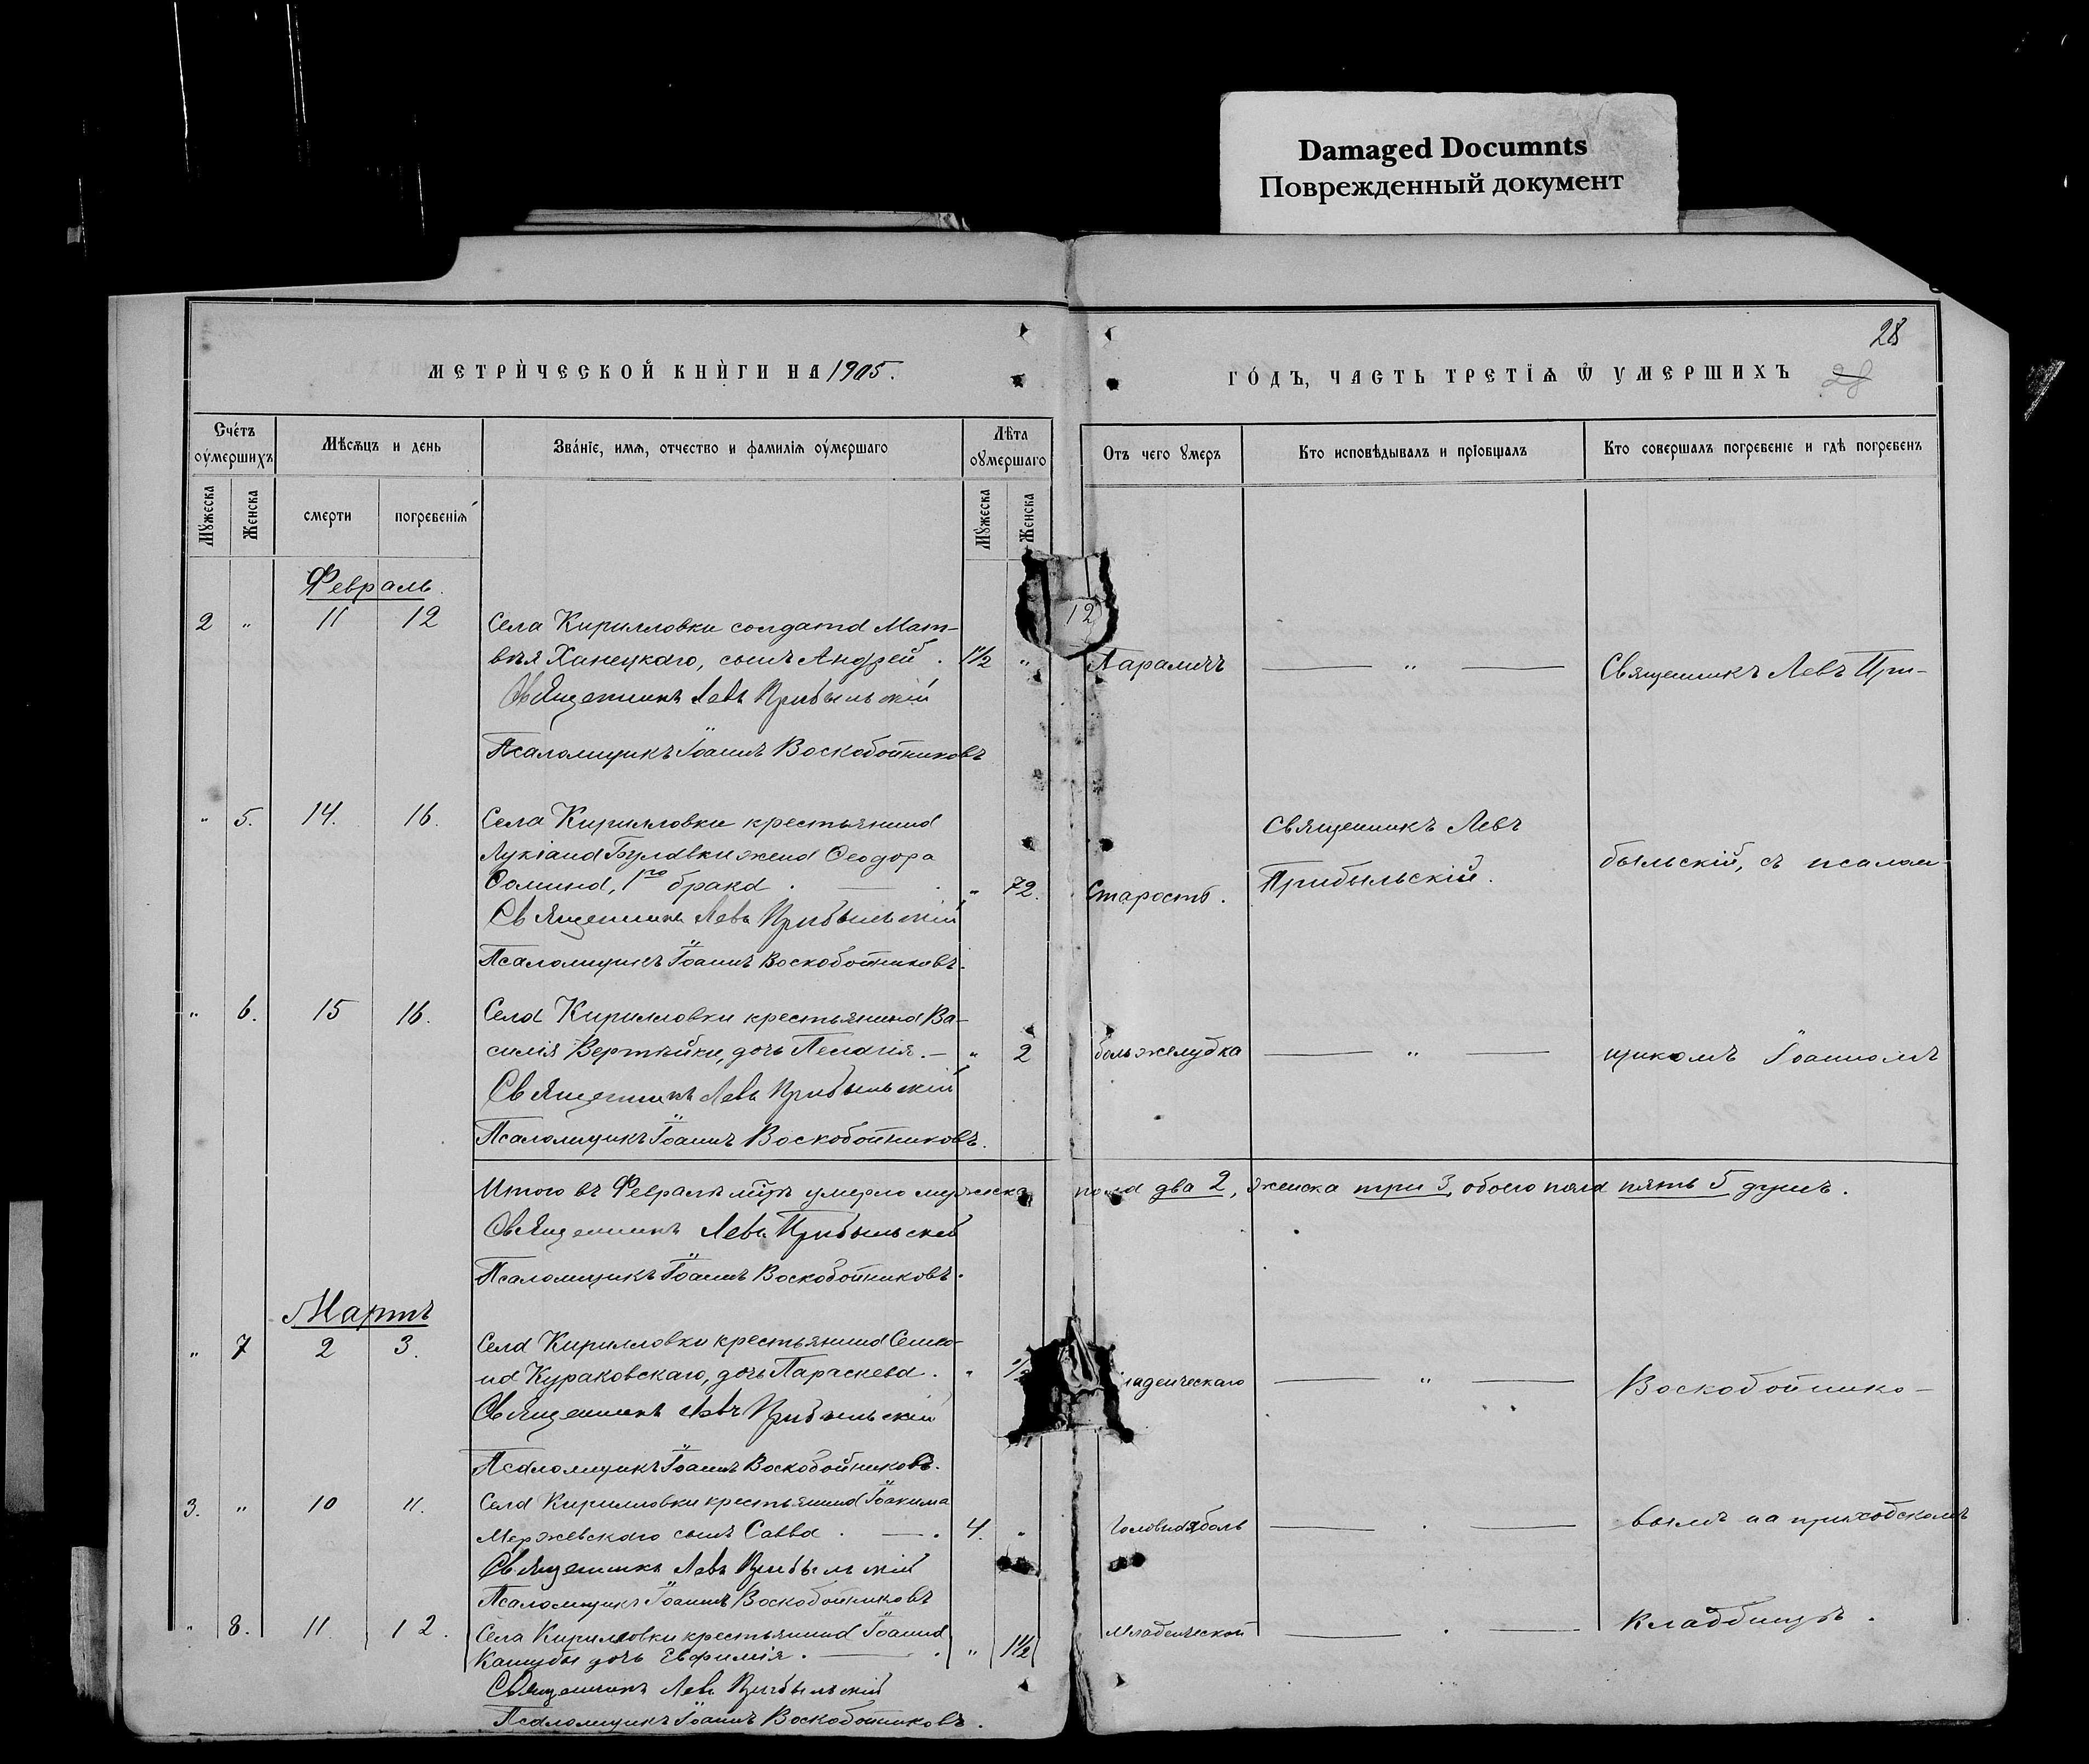 Damaged Documnts
Поврежденный документ
28
28
МЕТРИЧЕСКОЙ КНИГИ НА 1905.
ГОДЪ, ЧАСТЬ ТРЕТІѦ Ѿ УМЕРШИХЪ
Счетъ оумершихъ
Мѣсѧцъ и день
Званіе, имѧ, отчество и фамиліѧ оумершаго
Лѣта оумершаго
Отъ чего умеръ
Кто исповѣдывалъ и пріобщалъ
Кто совершалъ погребеніе и гдѣ погребенъ
Мужеска
Женска
смерти
погребеніѧ
Мужеска
Женска
Февраль.
12
2 " 11 12 Села Кирилловки солдата Мат-
вѣя Ханецкаго, сынъ Андрей. 1½ " Параличъ — " — Священникъ Левъ При-
Священникъ Левъ Прибыльскій
Псаломщикъ Іоаннъ Воскобойниковъ
" 5. 14. 16. Села Кирилловки крестьянина Священникъ Левъ
Лукіана Булавки жена Ѳеодора быльскій, съ псалом-
Ѳомина, 1го брака. — " 72. Старость. Прибыльскій.
Священникъ Левъ Прибыльскій
Псаломщикъ Іоаннъ Воскобойниковъ.
" 6. 15 16. Села Кирилловки крестьянина Ва-
силія Вертѣйки, дочь Пелагія. — " 2 боль желудка — " — щикомъ Іоанномъ
Священникъ Левъ Прибыльскій
Псаломщикъ Іоаннъ Воскобойниковъ.
Итого въ Февралѣ м̃цѣ умерло мужеска пола два 2, женска три 3, обоего пола пять 5 душъ.
Священникъ Левъ Прибыльскій
Псаломщикъ Іоаннъ Воскобойниковъ.
Мартъ
" 7 2 3. Села Кирилловки крестьянина Симео-
на Кураковскаго, дочь Параскева. " — " — Воскобойнико-
Священникъ Левъ Прибыльскій
Псаломщикъ Іоаннъ Воскобойниковъ.
3. " 10 11. Села Кирилловки крестьянина Іоакима
Мержевскаго сынъ Савва. — 4. " Головная боль — " — вымъ на приходскомъ
Священникъ Левъ Прибыльскій
Псаломщикъ Іоаннъ Воскобойниковъ
" 8. 11. 12. Села Кирилловки крестьянина Іоанна Младенческой — " — кладбищѣ.
Кашубы дочь Евфимія. — " 1½
Священникъ Левъ Прибыльскій
Псаломщикъ Іоаннъ Воскобойниковъ.